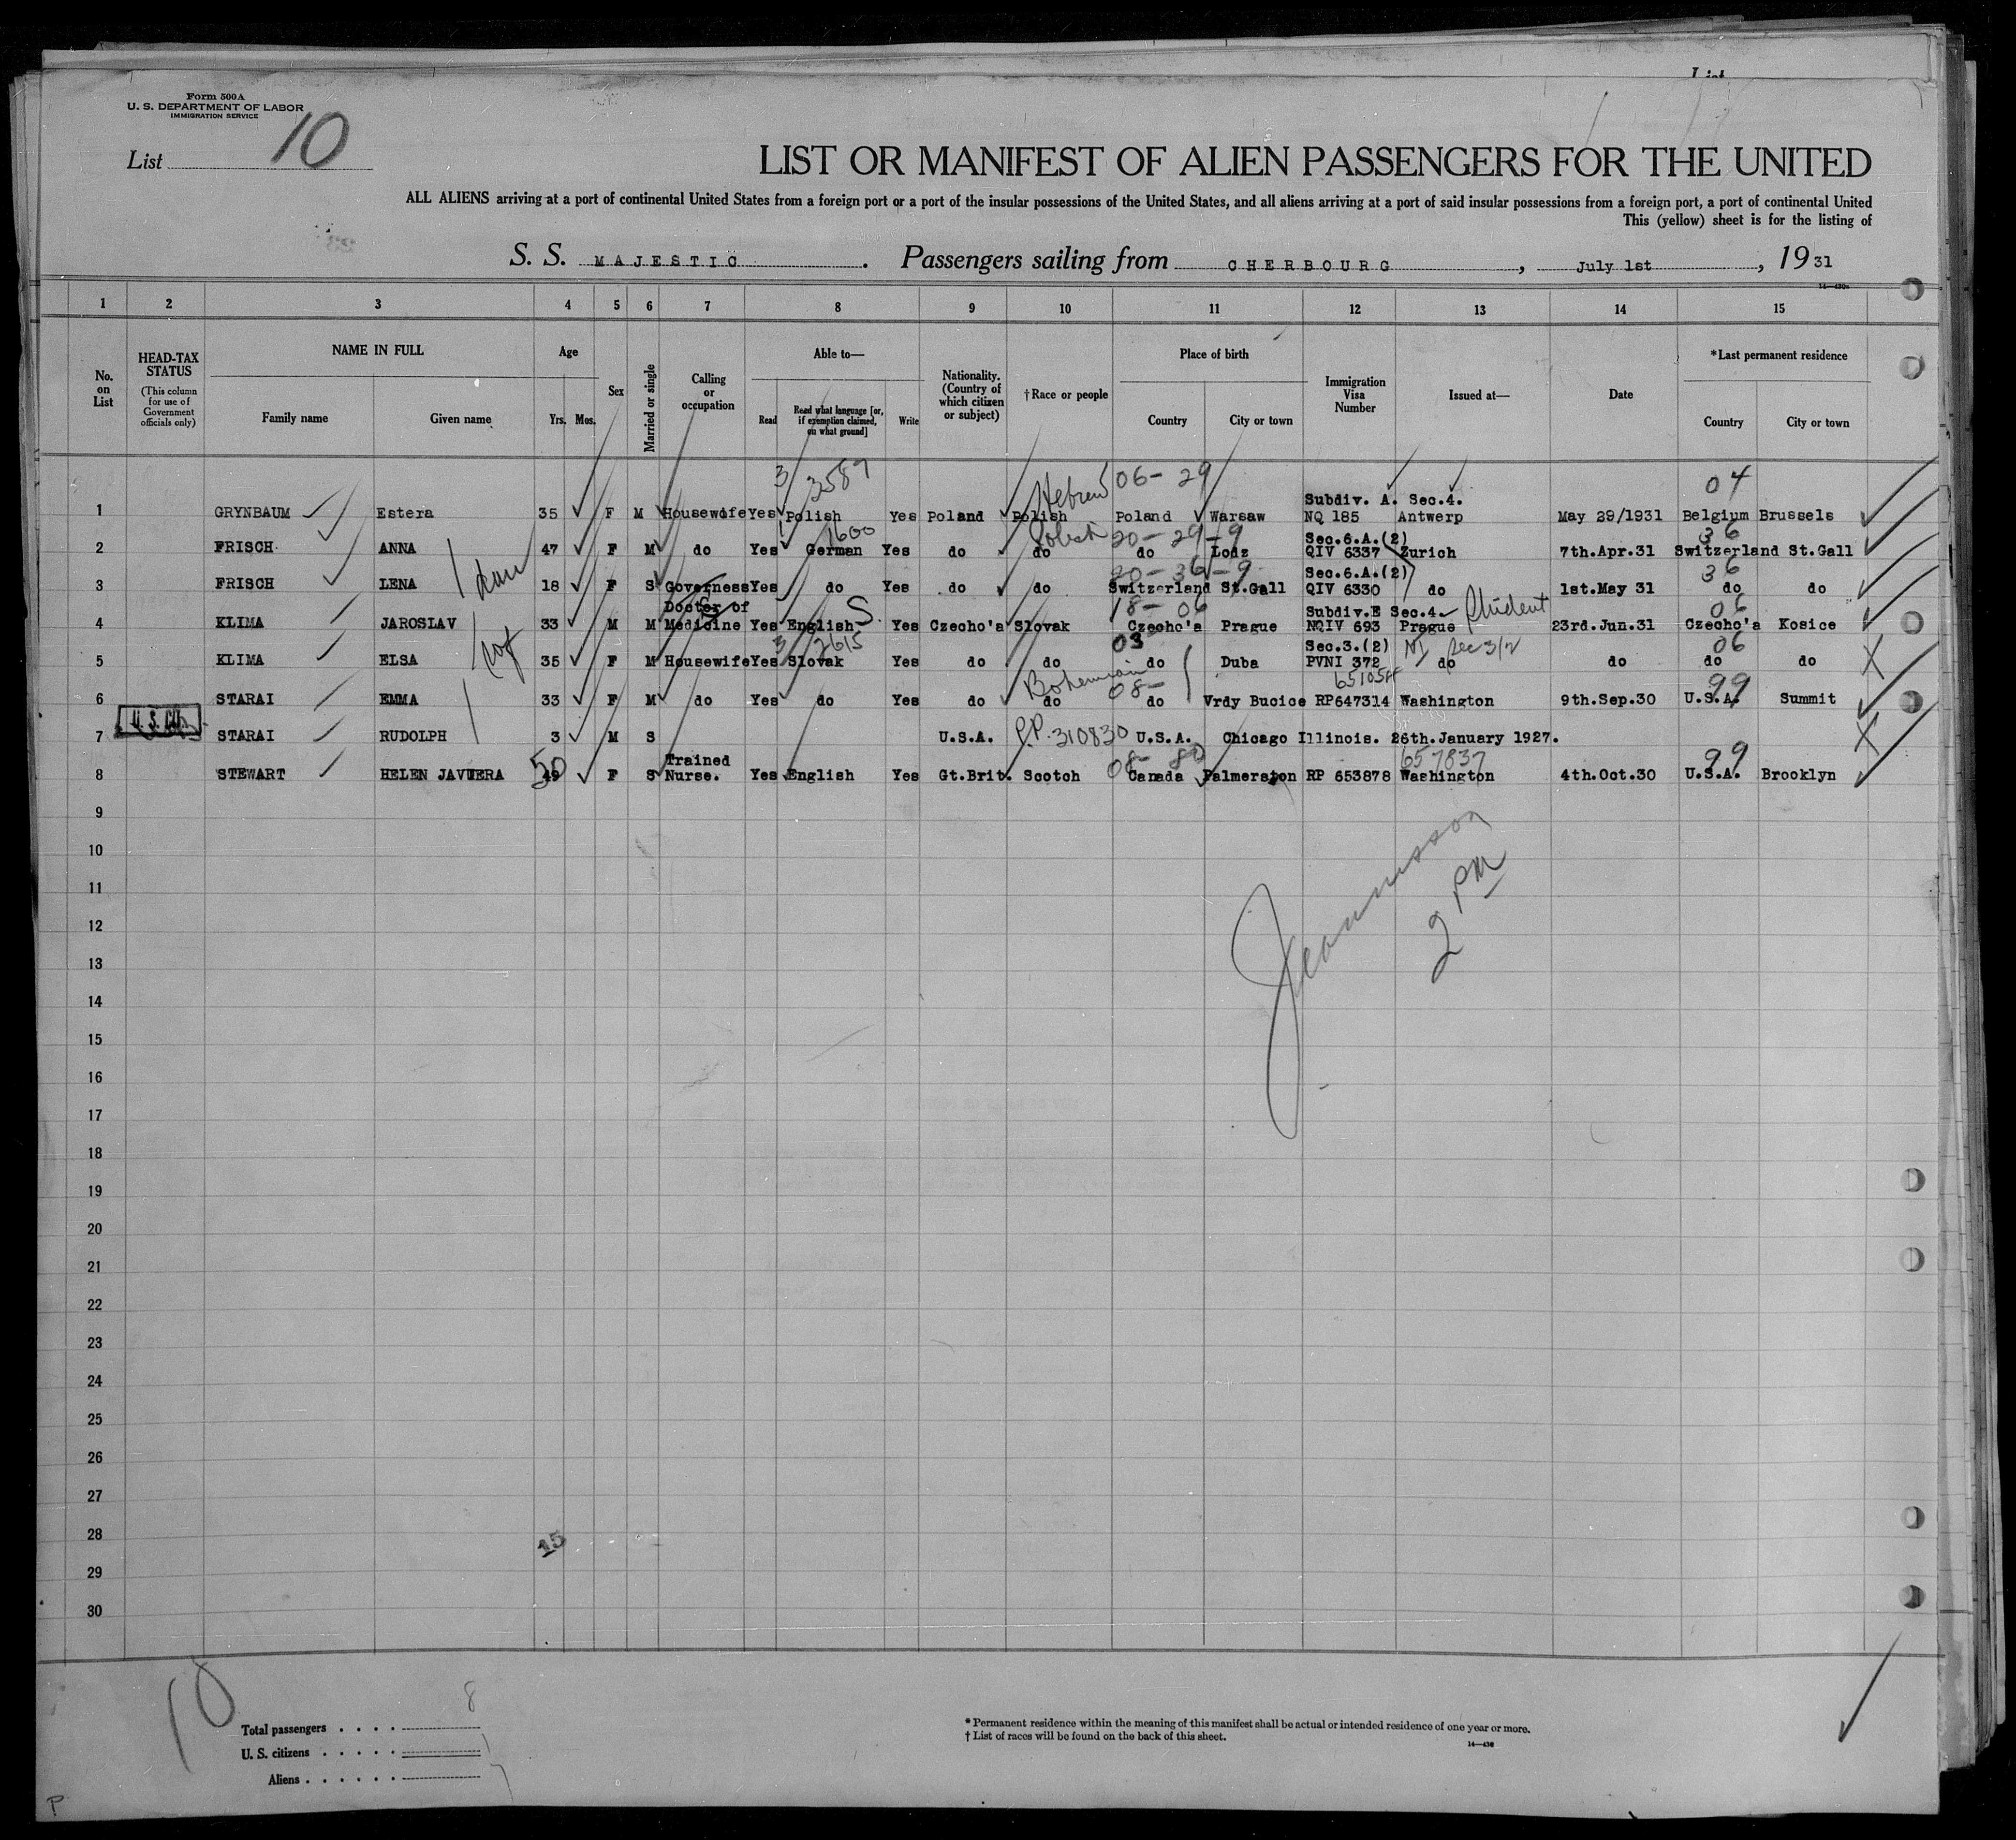 List
Form 500A
U. S. DEPARTMENT OF LABOR
IMMIGRATION SERVICE
List 10
LIST OR MANIFEST OF ALIEN PASSENGERS FOR THE UNITED
ALL ALIENS arriving at a port of continental United States from a foreign port or a port of the insular possessions of the United States, and all aliens arriving at a port of said insular possessions from a foreign port, a port of continental United
This (yellow) sheet is for the listing of
S. S. MAJESTIC. Passengers sailing from CHERBOURG, July 1st, 1931
1 2 3 4 5 6 7 8 9 10 11 12 13 14 15
No. on List
HEAD-TAX STATUS (This column for use of Government officials only)
NAME IN FULL Family name Given name
Age Yrs. Mos.
Sex
Married or single
Calling or occupation
Able to— Read Read what language [or, if exemption claimed, on what ground] Write
Nationality. (Country of which citizen or subject)
†Race or people
Place of birth Country City or town
Immigration Visa Number
Issued at—
Date
*Last permanent residence Country City or town
3 3587 Hebrew 06-29 Subdiv. A. Sec.4. 04
1 GRYNBAUM Estera 35 F M Housewife Yes Polish Yes Poland Polish Poland Warsaw NQ 185 Antwerp May 29/1931 Belgium Brussels
1600 Polish 20-29-9 Sec.6.A.(2) 36
2 FRISCH ANNA 47 F M do Yes German Yes do do do Lodz QIV 6337 Zurich 7th.Apr.31 Switzerland St.Gall
20-36-9 Sec.6.A.(2) 36
3 FRISCH LENA 18 F S Governess Yes do Yes do do Switzerland St.Gall QIV 6330 do 1st.May 31 do do
Doctor of S 18-06 Subdiv.E Sec.4. Student 06
4 KLIMA JAROSLAV 33 M M Medicine Yes English Yes Czecho'a Slovak Czecho'a Prague NQIV 693 Prague 23rd.Jun.31 Czecho'a Kosice
3 2615 03 Sec.3.(2) Sec 3/2 06
5 KLIMA ELSA 35 F M Housewife Yes Slovak Yes do do do Duba PVNI 372 do do do do
Bohemian 08- 651054 99
6 STARAI EMMA 33 F M do Yes do Yes do do do Vrdy Bucice RP647314 Washington 9th.Sep.30 U.S.A. Summit
U. S. Cit.
7 STARAI RUDOLPH 3 M S U.S.A. P.P. 310830 U.S.A. Chicago Illinois. 26th.January 1927.
50 Trained 08- 80 657837 99
8 STEWART HELEN JAVUERA 49 F S Nurse. Yes English Yes Gt.Brit. Scotch Canada Palmerston RP 653878 Washington 4th.Oct.30 U.S.A. Brooklyn
9
10
11
12
2 PM
13
14
15
16
17
18
19
20
21
22
23
24
25
26
27
28 15
29
30
10
Total passengers . . . . 8
U. S. citizens . . . . . 1
Aliens . . . . . . 7
* Permanent residence within the meaning of this manifest shall be actual or intended residence of one year or more.
† List of races will be found on the back of this sheet.
14—430
P